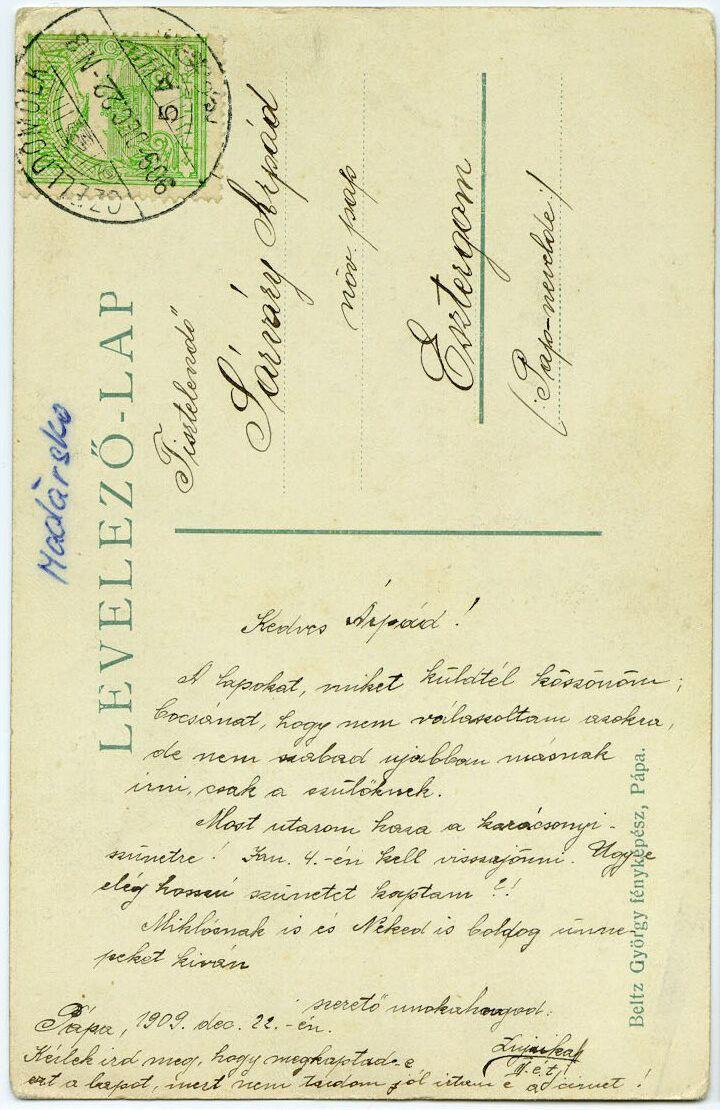 CZELLDÖMÖLK
909 DEC 22 - N8
5
Madàrsko
LEVELEZŐ-LAP
Tisztelendő
Sárváry Árpád
növ. pap
Esztergom
(: Pap-nevelde :)
Kedves Árpád!
A lapokat, miket küldtél köszönöm;
bocsánat, hogy nem válaszoltam azokra,
de nem szabad ujabban másnak
irni, csak a szülőknek.
Most utazom haza a karácsonyi-
szünetre! Jan. 4.-én kell visszajönni. Ugy-e
elég hosszú szünetet kaptam?!
Miklósnak is és Neked is boldog ünne-
peket kiván
szerető unokahugod:
Pápa, 1909. dec. 22.-én.
Kérlek ird meg, hogy megkaptad-e
ezt a lapot, mert nem tudom jól irtam e a cimet!
Beltz György fényképész, Pápa.